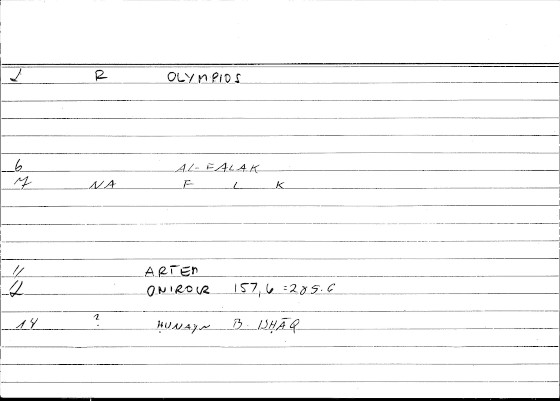 1 R OLYMPIOS
6 AL-FALAK
7 NA F L K
11 ARTEM
12 ONIROCR 157,6 = 285.6
14 ? ḤUNAYN B. ISḤĀQ